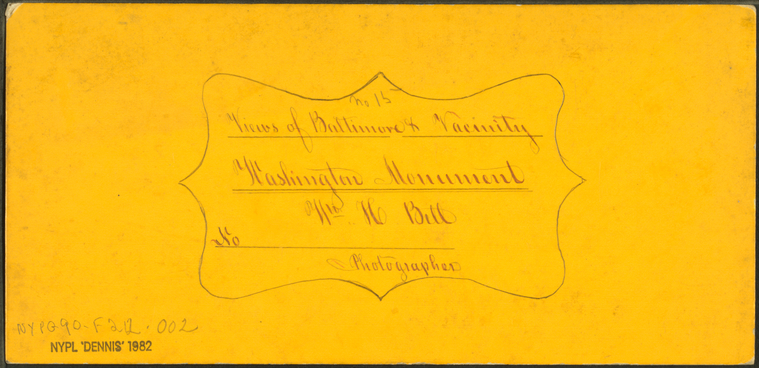 No 15
Views of Baltimore & Vacinity
Washington Monument
Wm H Bell
No
Photographer
NYPG90-F212-002
NYPL 'DENNIS' 1982